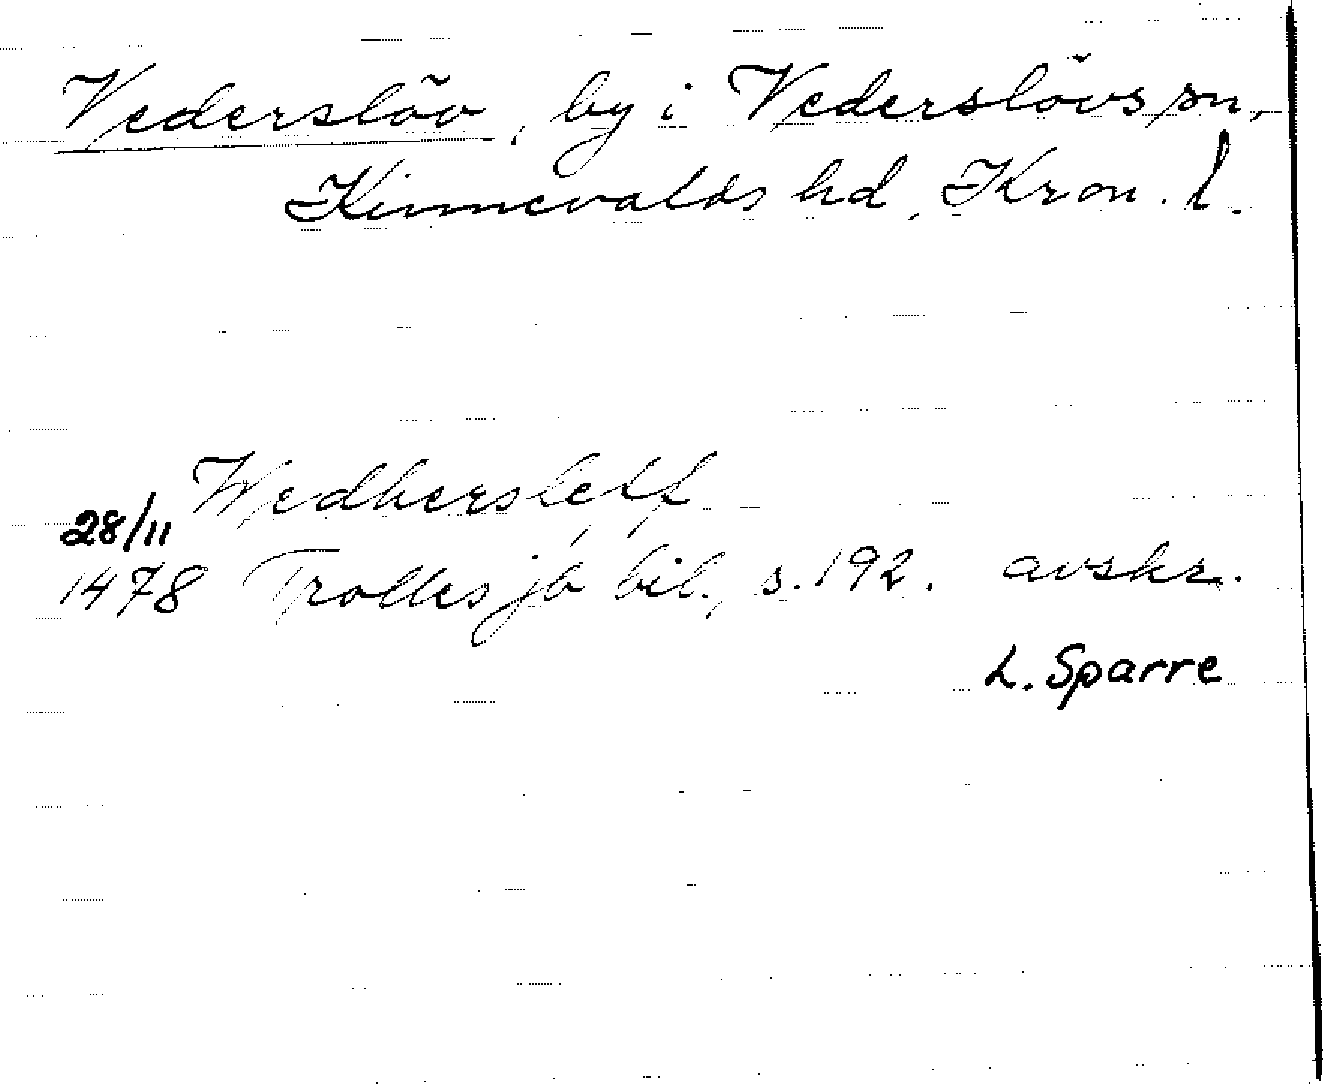 Vederslöv, by i Vederslövs sn,
Kinnevalds hd, Kron. l.
Wedhersleff
28/11
1478 Trolles jb bil., s. 192. avskr.
L. Sparre